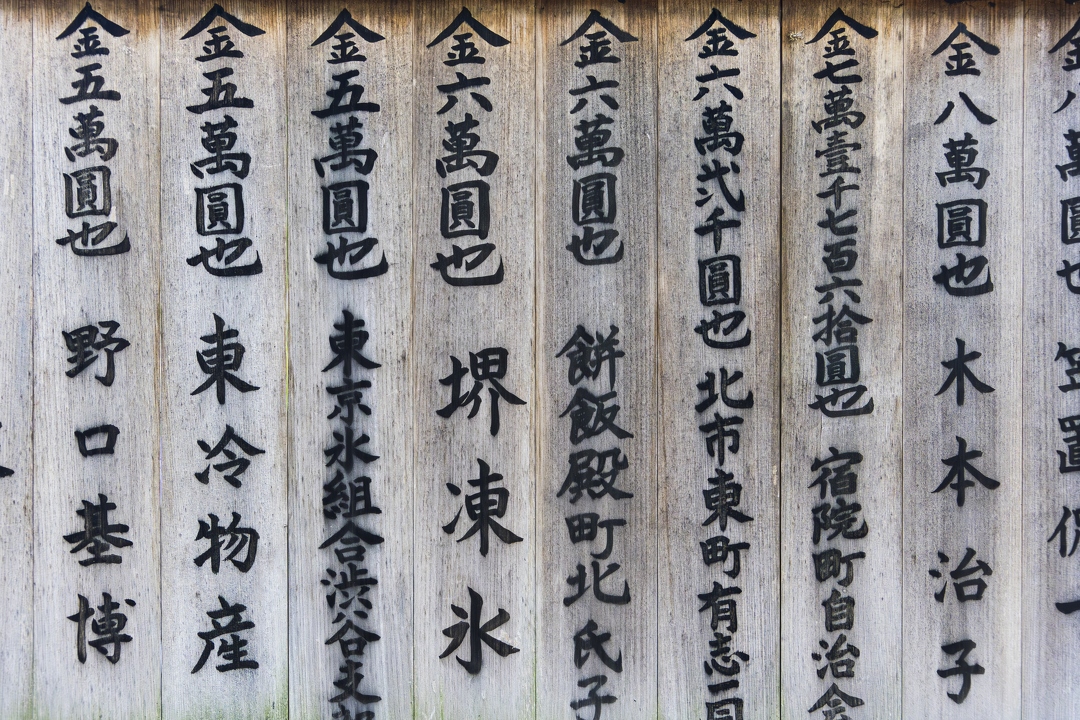 金八萬圓也 笠置侃一
金八萬圓也 木本治子
金七萬壹千七百六拾圓也 宿院町自治会
金六萬弐千圓也 北市東町有志一同
金六萬圓也 餅飯殿町北氏子
金六萬圓也 堺凍氷
金五萬圓也 東京氷組合渋谷支部
金五萬圓也 東冷物産
金五萬圓也 野口基博